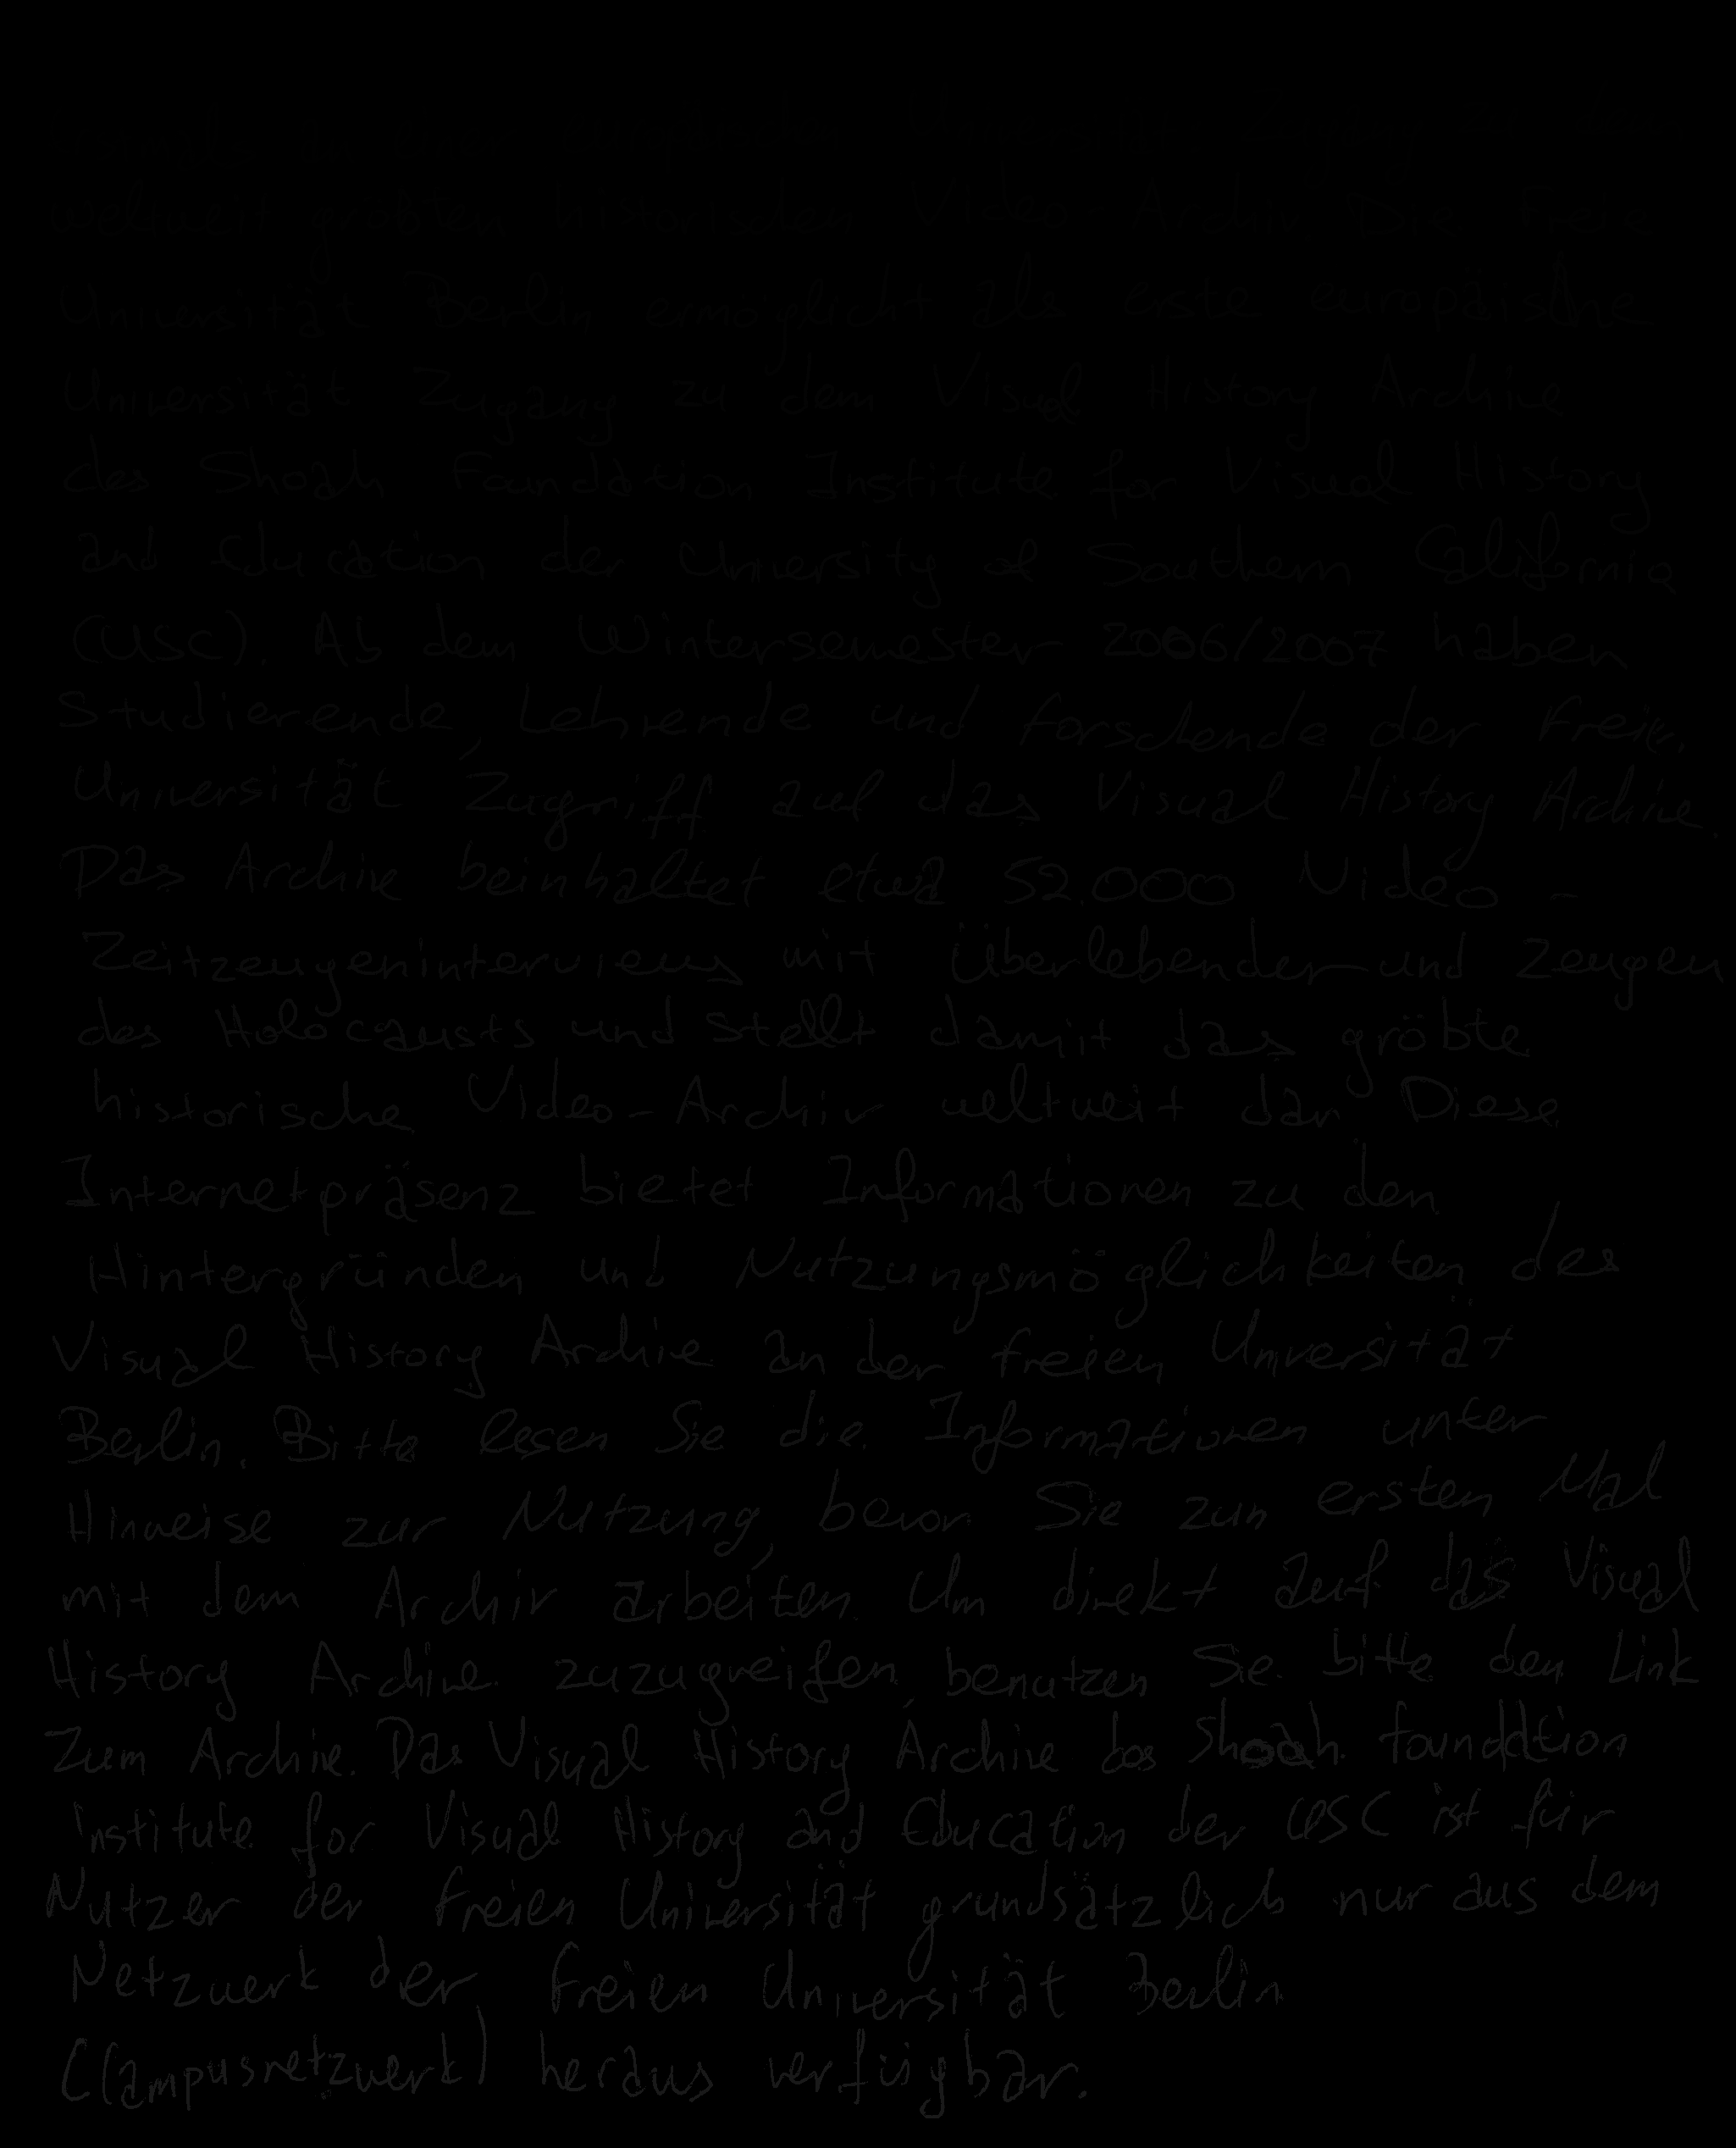 weltweit größten historischen Video-Archiv. Die Freie
Universität Berlin ermöglicht als erste europäische
Universität Zugang zu dem Visual History Archive
des Shoah Foundation Institute for Visual History
and Education der University of Southern California
(USC). Ab dem Wintersemester 2006/2007 haben
Studierende, Lehrende und Forschende der Freien
Universität Zugriff auf das Visual History Archive.
Das Archive beinhaltet etwa 52.000 Video-
Zeitzeugeninterviews mit Überlebenden und Zeugen
des Holocausts und stellt damit das größte
historische Video-Archiv weltweit dar. Diese
Internetpräsenz bietet Informationen zu den
Hintergründen und Nutzungsmöglichkeiten des
Visual History Archive an der Freien Universität
Berlin. Bitte lesen Sie die Informationen unter
Hinweise zur Nutzung, bevor Sie zum ersten Mal
mit dem Archiv arbeiten. Um direkt auf das Visual
History Archive zuzugreifen, benutzen Sie bitte den Link
Zum Archive. Das Visual History Archive des Shoah Foundation
Institute for Visual History and Education der USC ist für
Nutzer der Freien Universität grundsätzlich nur aus dem
Netzwerk der Freien Universität Berlin
(Campusnetzwerk) heraus verfügbar.